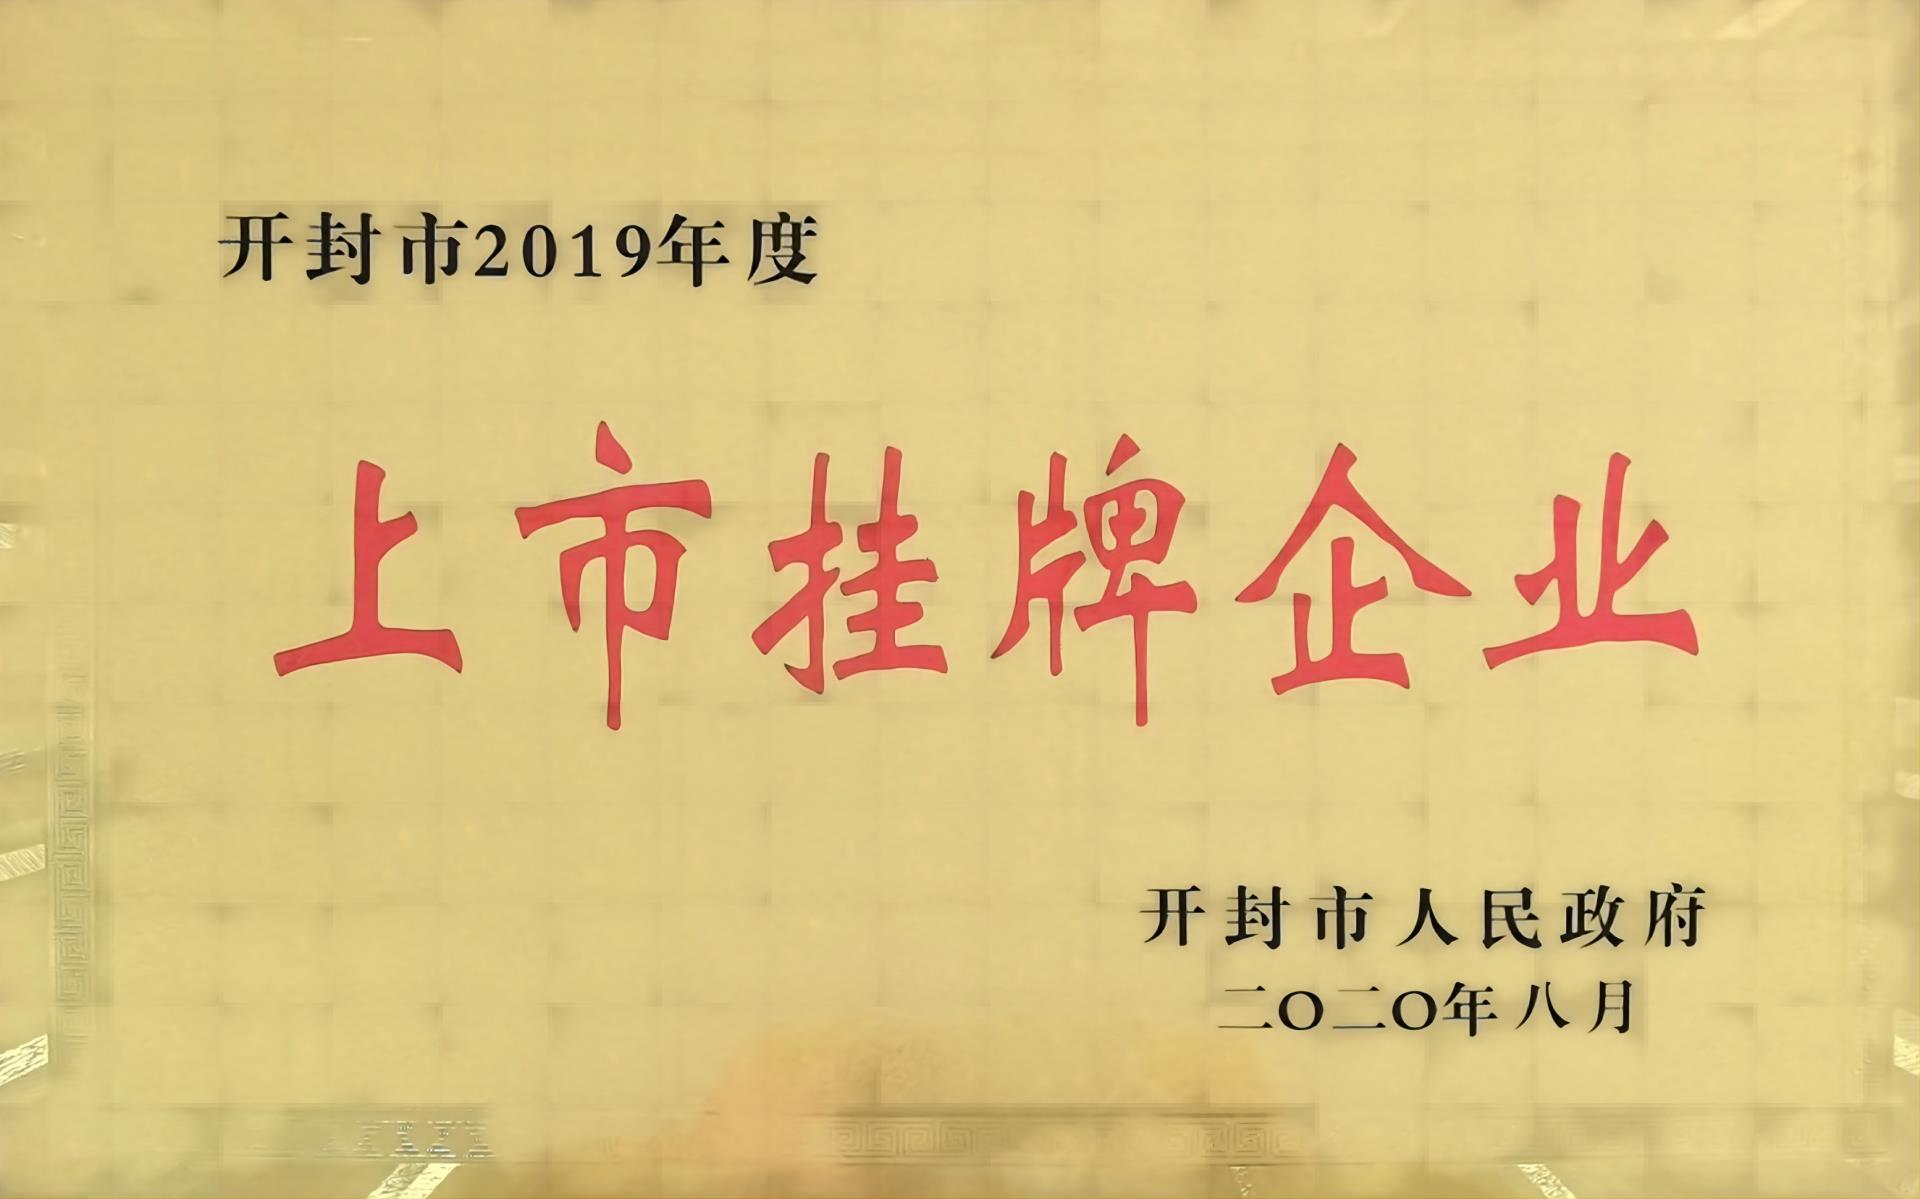 开封市2019年度
上市挂牌企业
开封市人民政府
二〇二〇年八月